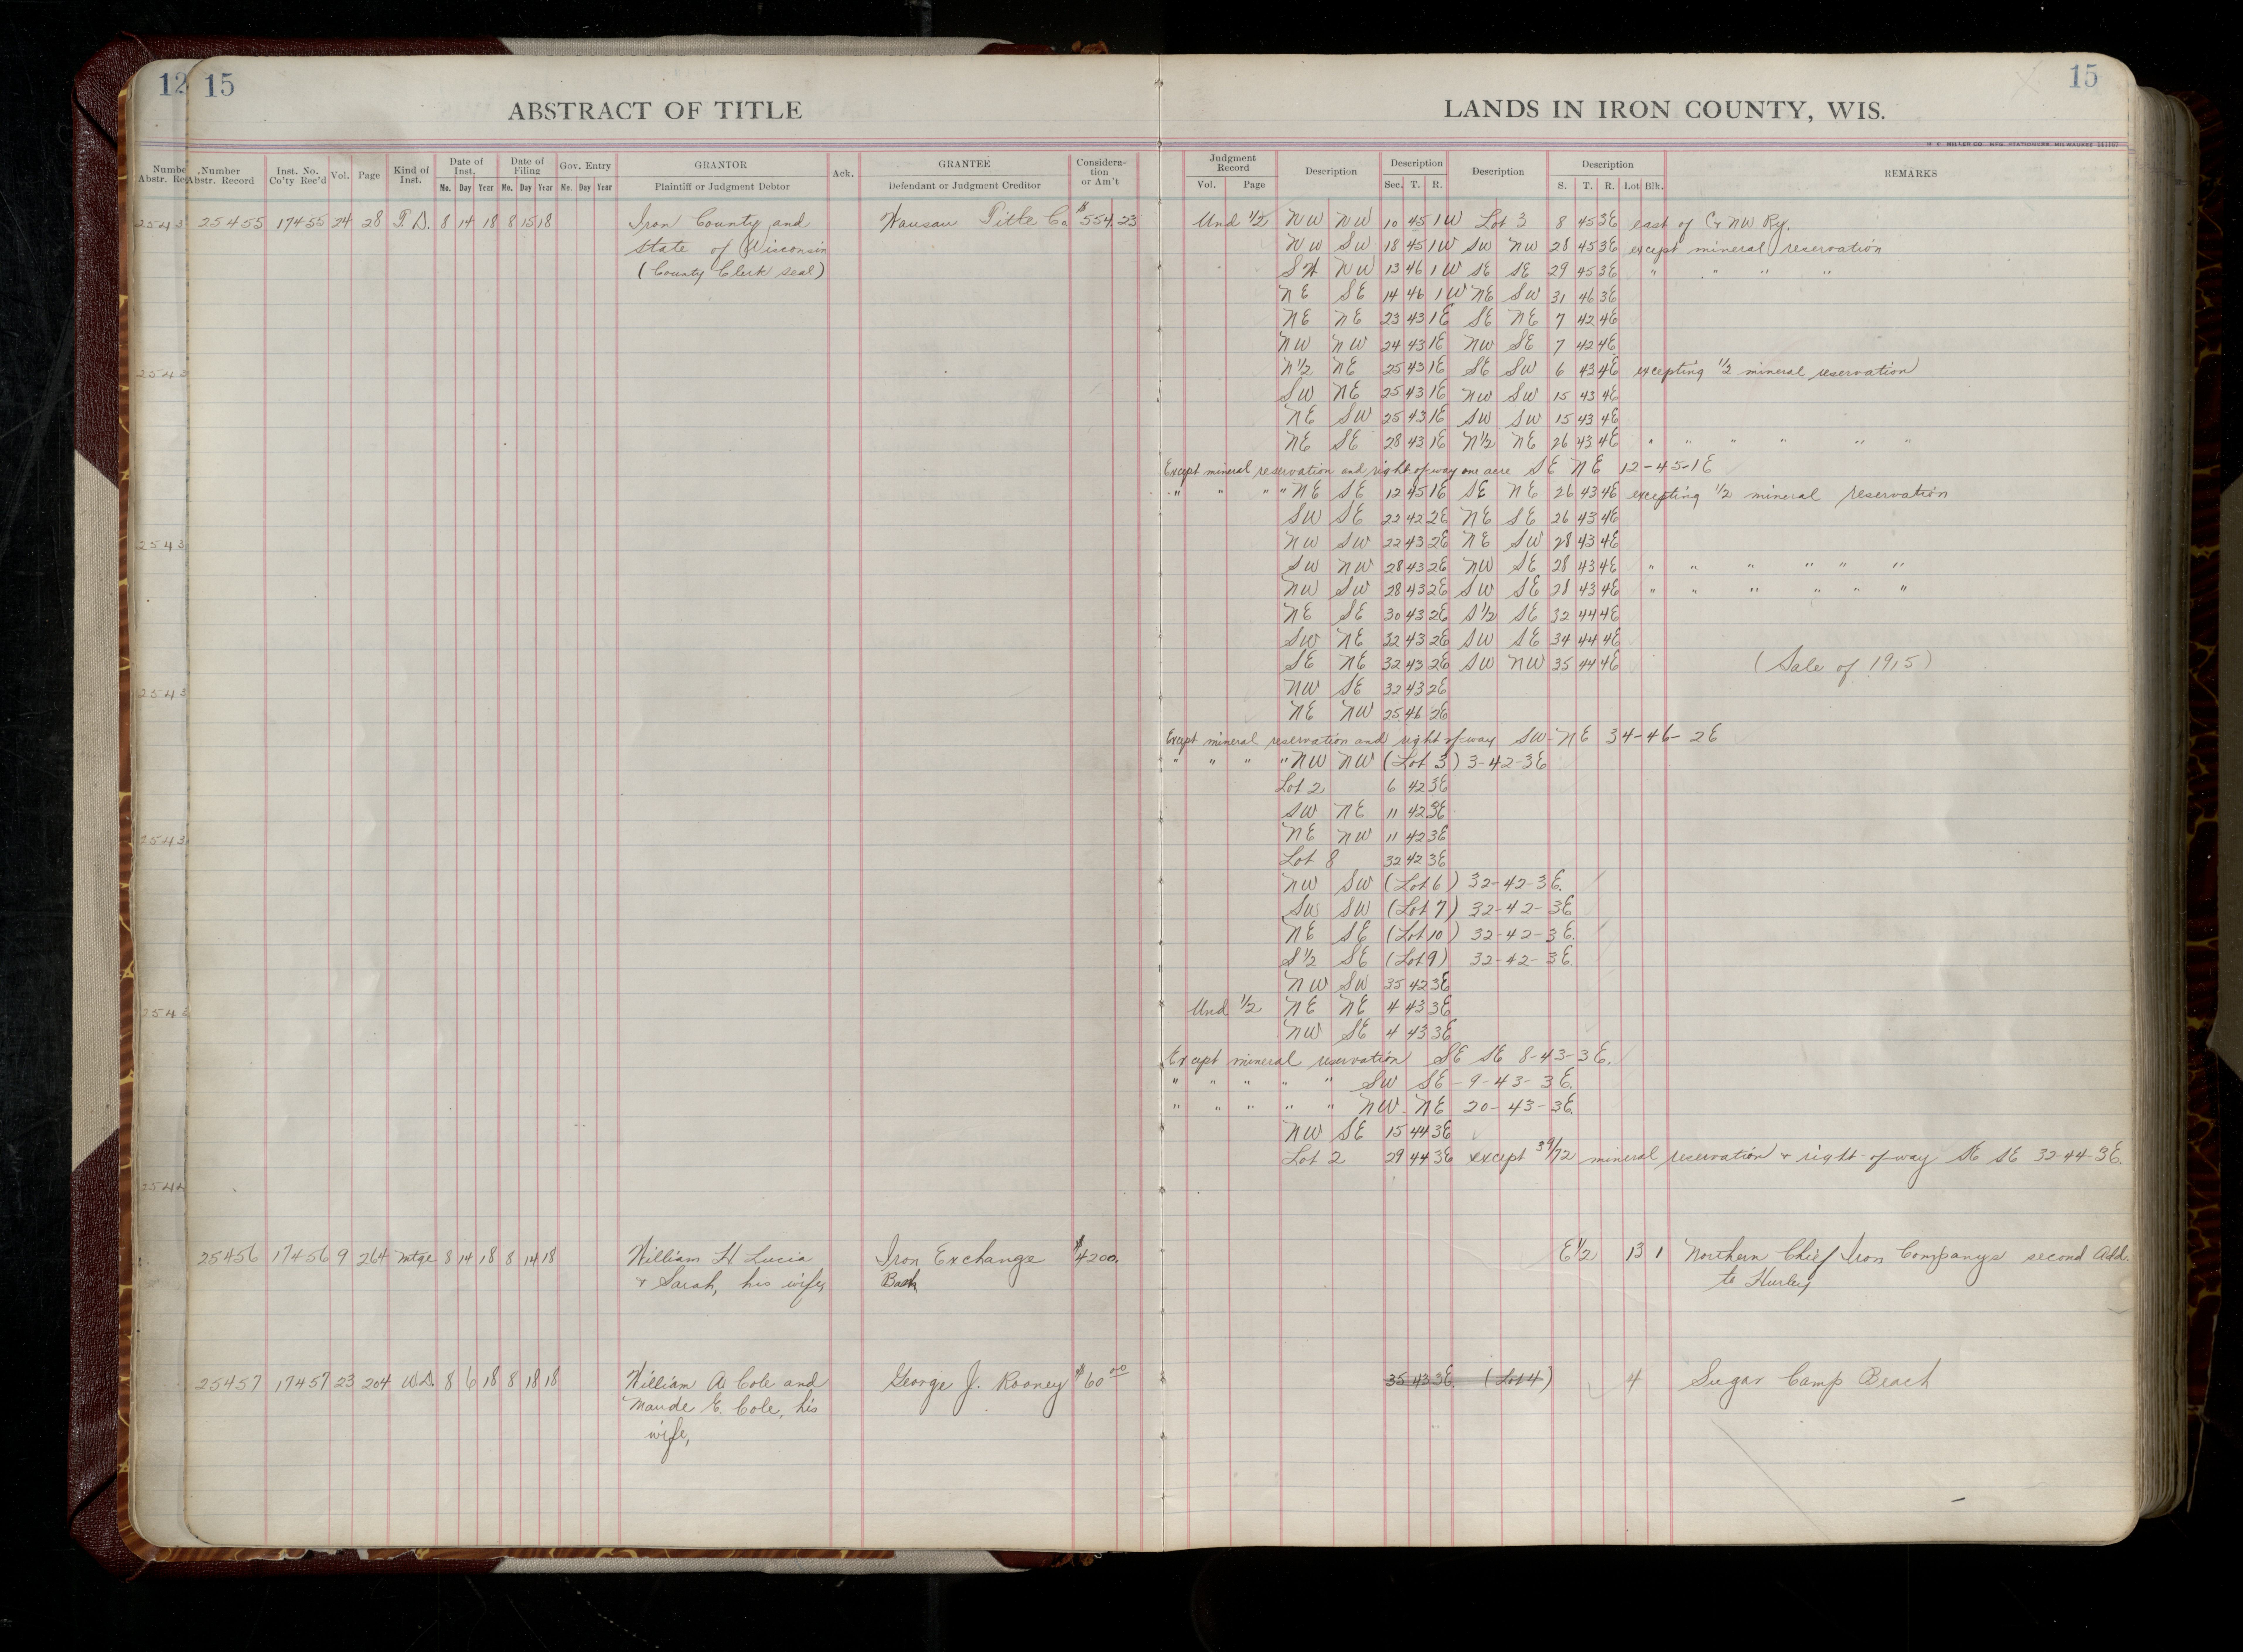 12 15
ABSTRACT OF TITLE
Number Abstr. Record Inst. No. Co'ty Rec'd Vol. Page Kind of Inst. Date of Inst. Date of Filing Gov. Entry GRANTOR Ack. GRANTEE Considera-tion or Am't
Mo. Day Year Mo. Day Year Mo. Day Year Plaintiff or Judgment Debtor Defendant or Judgment Creditor
25455 17455 24 28 T.D. 8 14 18 8 15 18 Iron County and Wausau Title Co $554.23
State of Wisconsin
(County Clerk seal)
25456 17456 9 264 Mtge 8 14 18 8 14 18 William H Lucia Iron Exchange $4200.
& Sarah, his wife, Bank
25457 17457 23 204 W.D. 8 6 18 8 18 18 William A. Cole and George J. Rooney $60 00
Maude E. Cole, his
wife,
15
LANDS IN IRON COUNTY, WIS.
Judgment Record Description Description Description Description REMARKS
Vol. Page Sec. T. R. S. T. R. Lot Blk.
Und 1/2 NW NW 10 45 1W Lot 3 8 45 3E east of C & NW Ry.
NW SW 18 45 1W SW NW 28 45 3E except mineral reservation
NW 13 46 1W SE SE 29 45 3E " " " "
NE SE 14 46 1W NE SW 31 46 3E
NE NE 23 43 1E SE NE 7 42 4E
NW NW 24 43 1E NW SE 7 42 4E
N 1/2 NE 25 43 1E SE SW 6 43 4E excepting 1/2 mineral reservation
SW NE 25 43 1E NW SW 15 43 4E
NE SW 25 43 1E SW SW 15 43 4E
NE SE 28 43 1E N 1/2 NE 26 43 4E " " " " " "
Except mineral reservation and right-of-way one acre SE NE 12-45-1E
" " " " NE SE 12 45 1E SE NE 26 43 4E excepting 1/2 mineral reservation
SW SE 22 42 2E NE SE 26 43 4E
NW SW 22 43 2E NE SW 28 43 4E
SW NW 28 43 2E NW SE 28 43 4E " " " " " "
NW SW 28 43 2E SW SE 28 43 4E " " " " " "
NE SE 30 43 2E S 1/2 SE 32 44 4E
SW NE 32 43 2E SW SE 34 44 4E
SE NE 32 43 2E SW NW 35 44 4E (Sale of 1915)
NW SE 32 43 2E
NE NW 25 46 2E
Except mineral reservation and right-of-way SW-NE 34-46-2E
" " " " NW NW (Lot 3) 3-42-3E
Lot 2 6 42 3E
SW NE 11 42 3E
NE NW 11 42 3E
Lot 8 32 42 3E
NW SW (Lot 6) 32-42-3E.
SW SW (Lot 7) 32-42-3E
NE SE (Lot 10) 32-42-3E.
S 1/2 SE (Lot 9) 32-42-3E
NW SW 35 42 3E
Und 1/2 NE NE 4 43 3E
NW SE 4 43 3E
Except mineral reservation SE SE 8-43-3E.
" " " " " SW SE-9-43-3E.
" " " " " NW-NE 20-43-3E
NW SE 15 44 3E
Lot 2 29 44 3E except 39/72 mineral reservation & right-of-way SE SE 32-44-3E.
E 1/2 13 1 Northern Chief Iron Companys second Add.
to Hurley
35 43 3E. (Lot 4) 4 Sugar Camp Beach